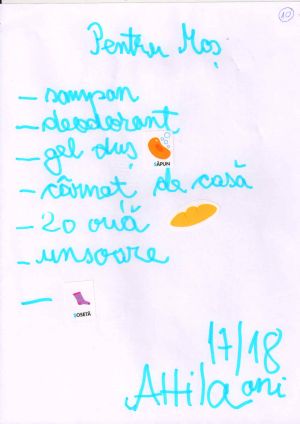 10
Pentru Moș
- sampan
- deodorant
- gel duș
SĂPUN
- cârnaț de casă
- 20 ouă
- unsoare
-
SOSETĂ
17/18
Attila ani